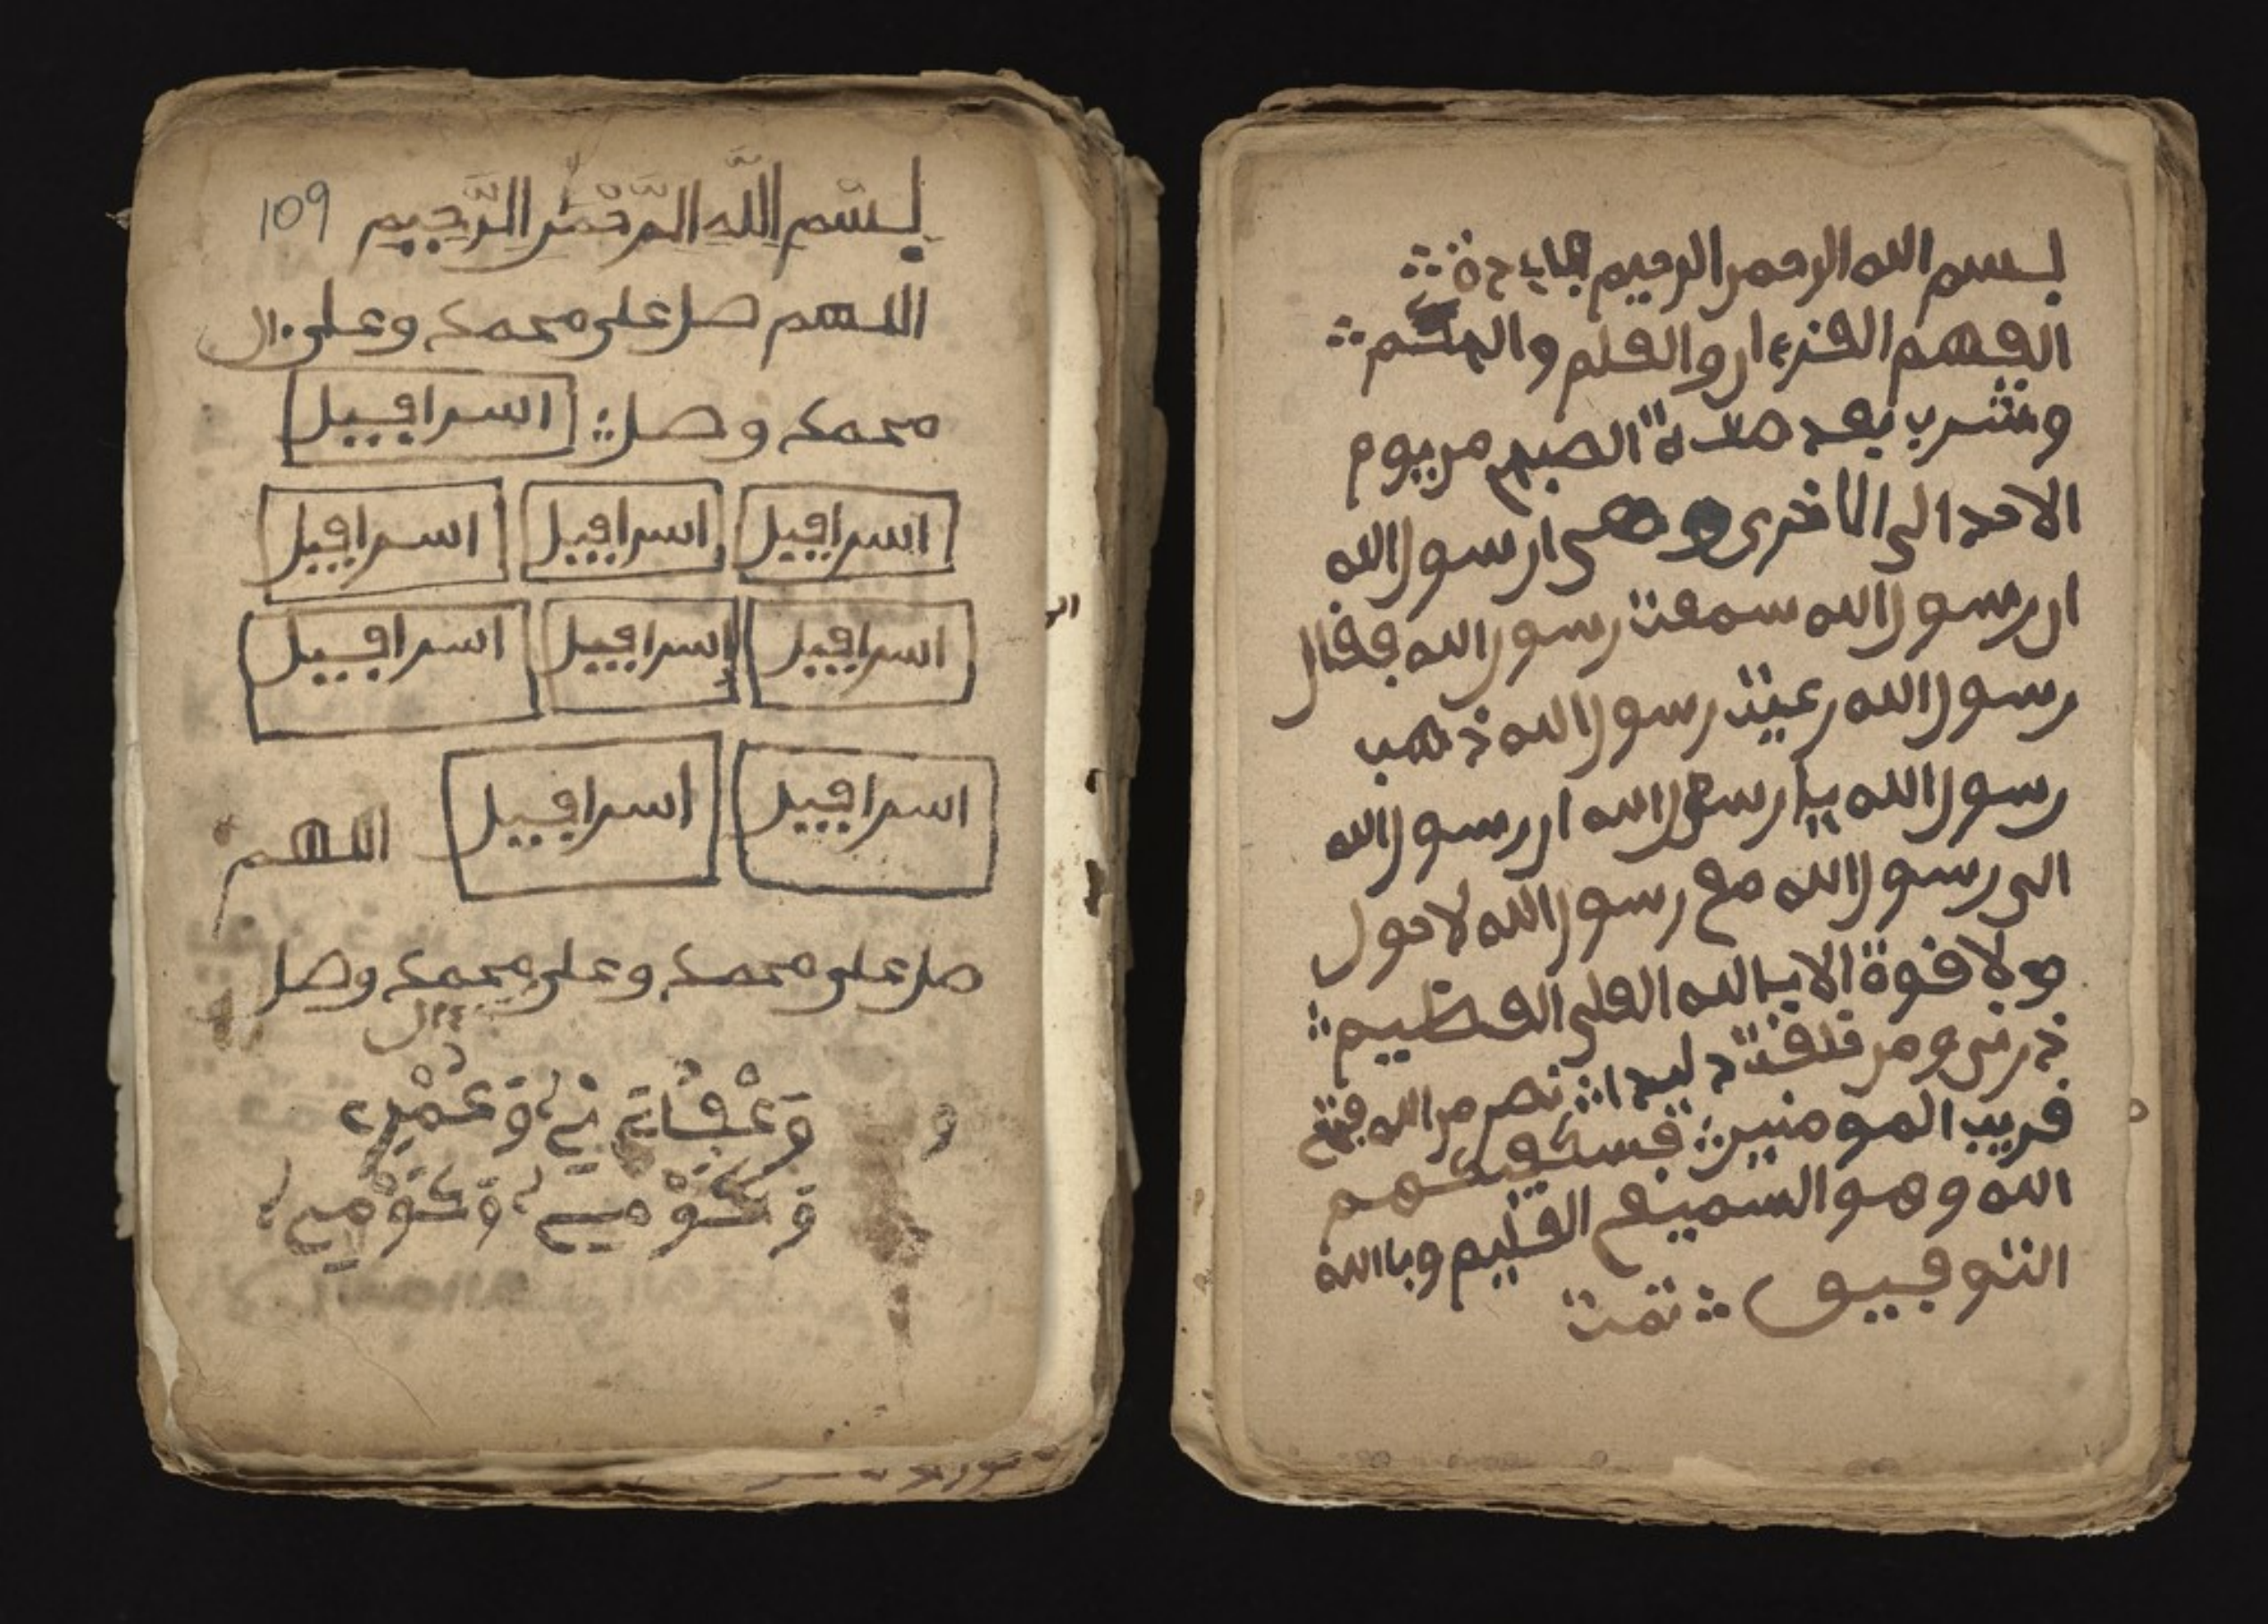 بسم الله الرحمر الرحيم
الفهم الفرءار والفلم
وشرب بعد صلاة الصبح مر يوم
الاحد الى الاخرى ارسول الله
ار رسول الله سمعت رسول الله ففال
رسول الله رعيت رسول الله ذهب
رسول الله يا رسول الله ار رسول الله
الى رسول الله مع رسول الله لا حول
ولا فوة الا بالله العلى العظيم
ذرنى ومر خلفت نصر مر الله وفتح
فريب المومنير فسيكفيكهم
الله وهو السميع العليم وبالله
التوفيو تمت
109
بِسْمِ اللَّهِ الرَّحْمَٰرِ الرَّحِيمِ
اللهم صل على محمد وعلى ءال
محمد وصل اسرافيل
اسرافيل اسرافيل اسرافيل
اسرافيل اسرافيل اسرافيل
اسرافيل اسرافيل اللهم
صل على محمد وعلى ءال محمد وصل